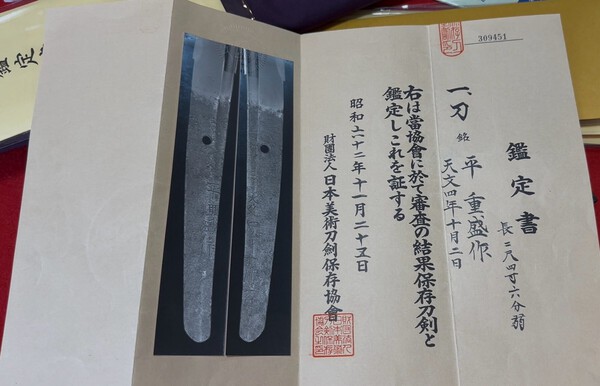 309451
鑑定書
一、刀 銘 平重盛作
天文四年十月二日
長二尺四寸六分弱
右は當協會に於て審査の結果保存刀劍と
鑑定しこれを証する
昭和六十二年十一月二十五日
財團法人 日本美術刀劍保存協會
鑑定